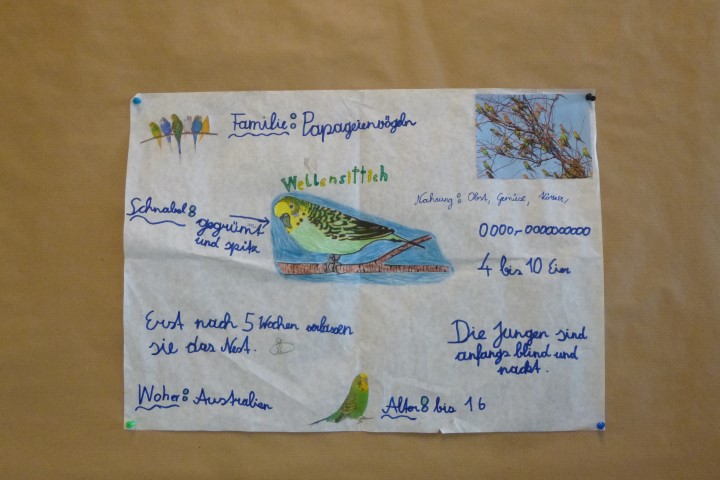 Familie: Papageienvögeln
Wellensittich
Schnabel:
gegrümt
und spitz
Nahrung: Obst, Gemüse, Körner,
0000,- 0000000000
4 bis 10 Eier
Erst nach 5 Wochen verlassen
sie das Nest.
Die Jungen sind
anfangs blind und
nackt.
Woher: Australien
Alter: 8 bis 16